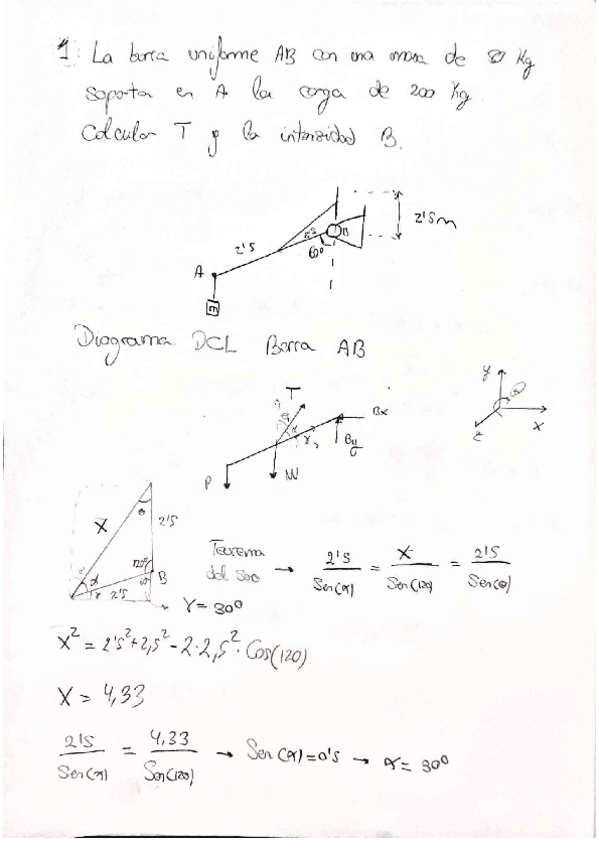 1. La barra uniforme AB con una masa de 80 Kg
soporta en A la carga de 200 Kg
Calcular T y la intensidad B.
2'5m
2'5
2'5
B
60º
A
m
Diagrama DCL Barra AB
T
θ
α
γ
Bx
By
P
W
y
x
z
θ
X
2'5
120º
60º
B
α
γ
2'5
γ = 30º
Teorema del Seno → 2'5/Sen(α) = X/Sen(120) = 2'5/Sen(θ)
X² = 2'5² + 2,5² - 2·2,5²·Cos(120)
X = 4,33
2'5/Sen(α) = 4,33/Sen(120) → Sen(α) = 0'5 → α = 30º